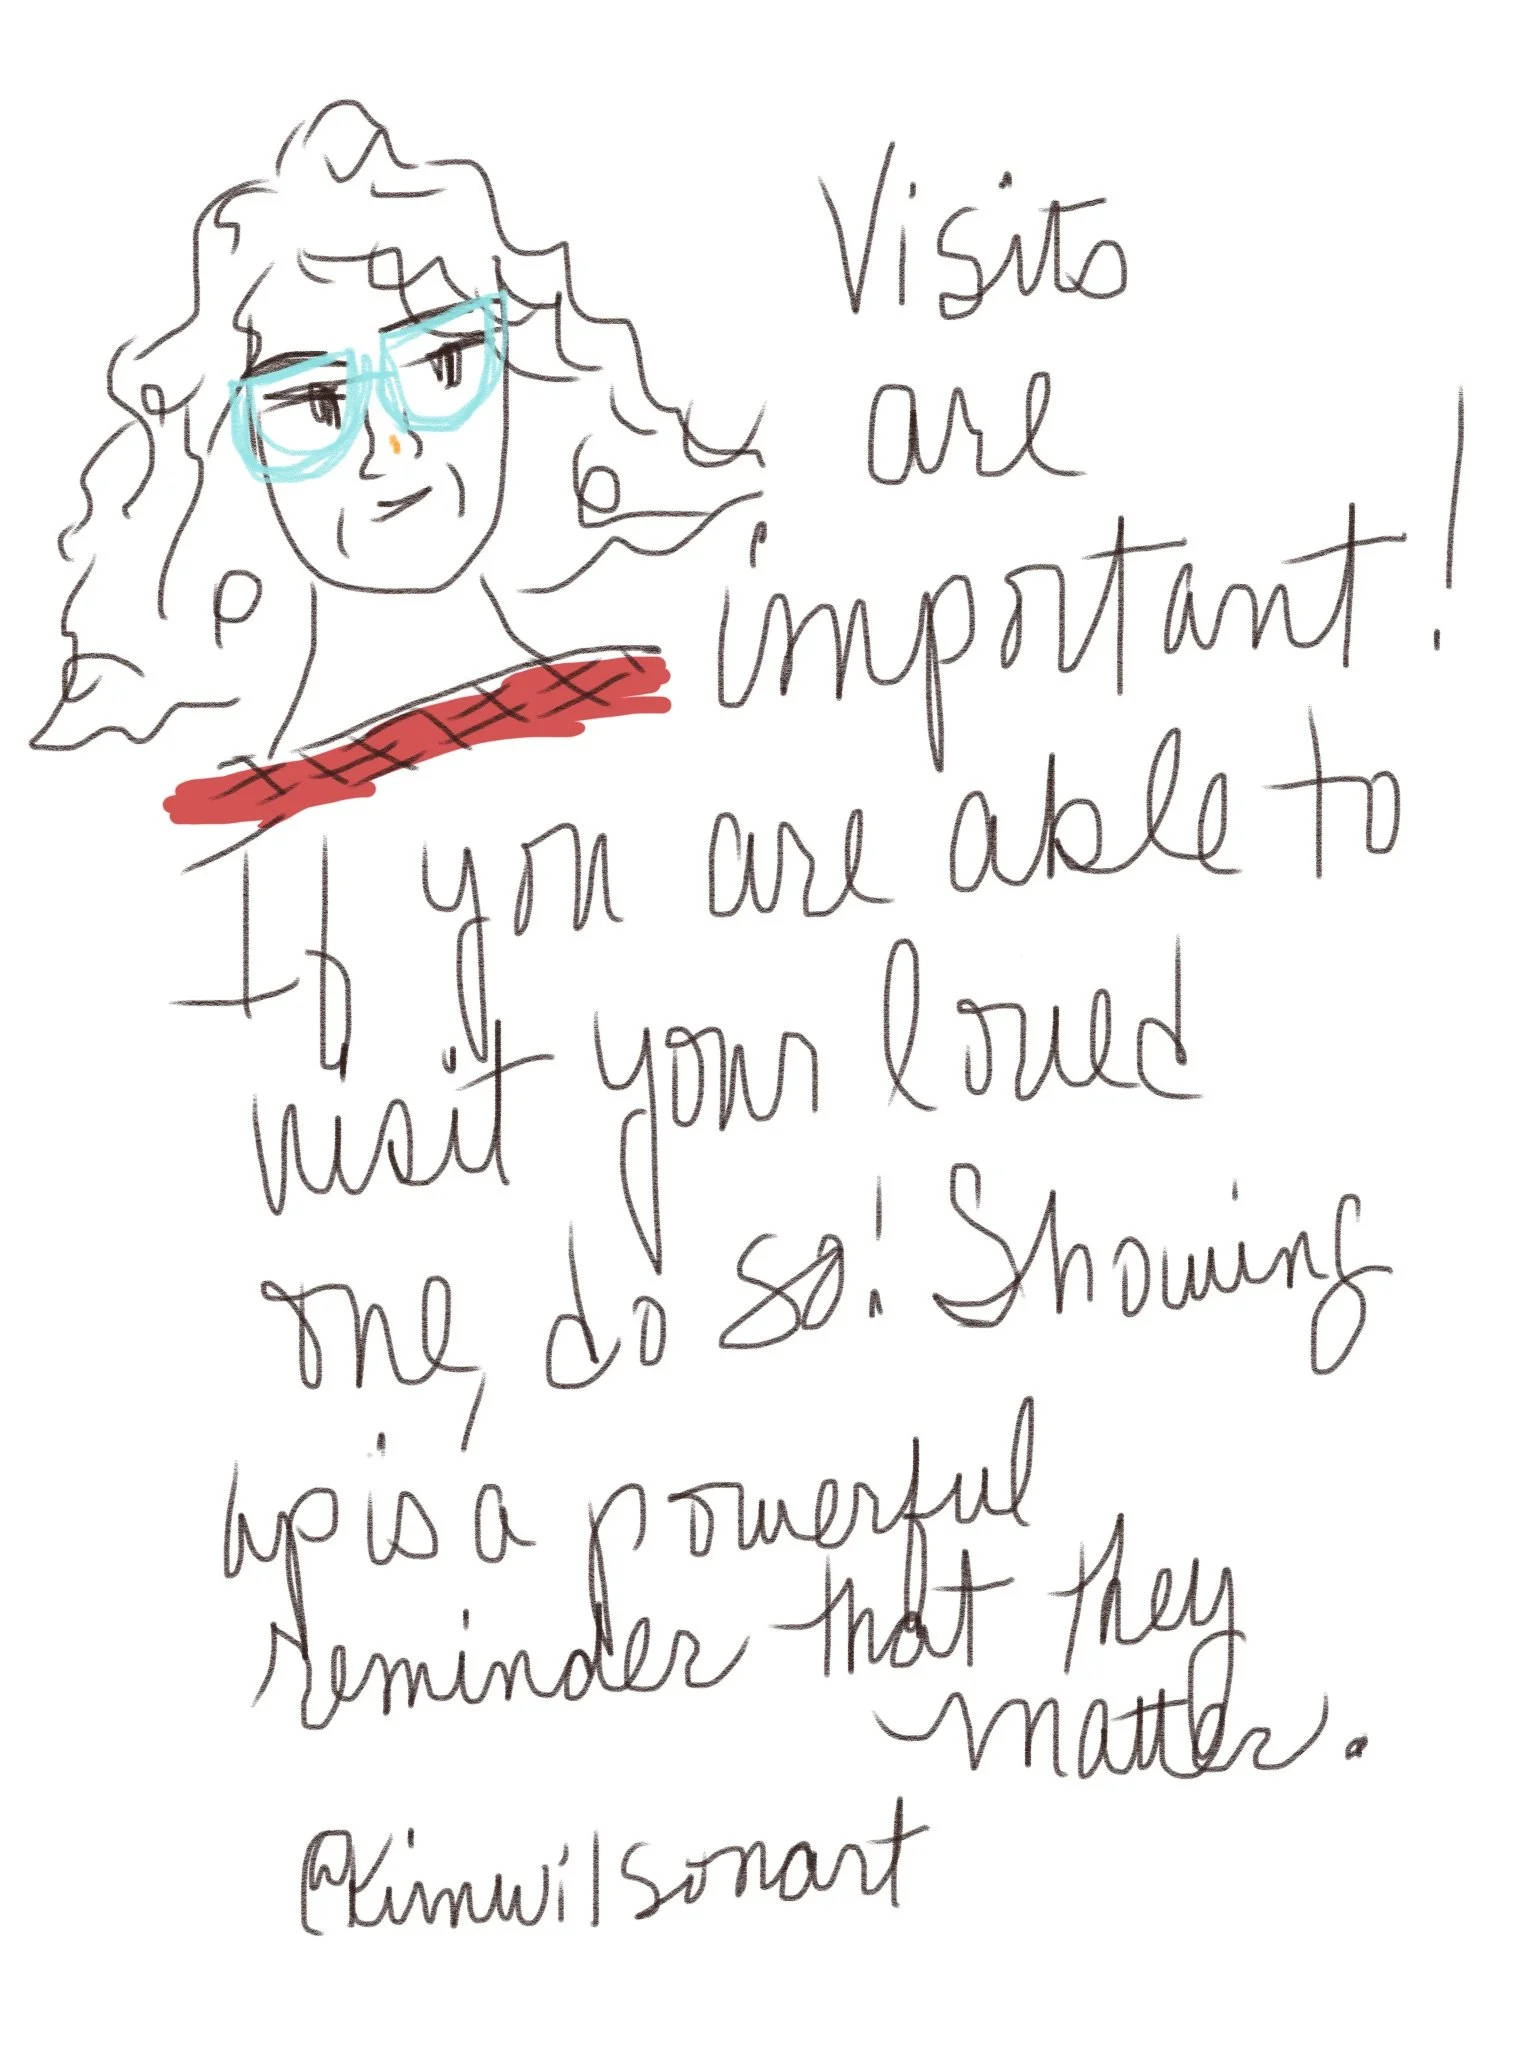 Visits
are
important!
If you are able to
visit your loved
one, do so! Showing
up is a powerful
reminder that they
matter.
@kimwilsonart